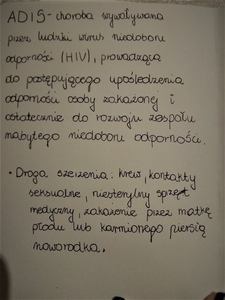 ADIS - choroba wywoływana
przez ludzki wirus niedoboru
odporności (HIV), prowadząca
do postępującego upośledzenia
odporności osoby zakażonej i
ostatecznie do rozwoju zespołu
nabytego niedoboru odporności.
• Droga szerzenia: krew, kontakty
seksualne, niesterylny sprzęt
medyczny, zakażenie przez matkę
płodu lub karmionego piersią
noworodka.